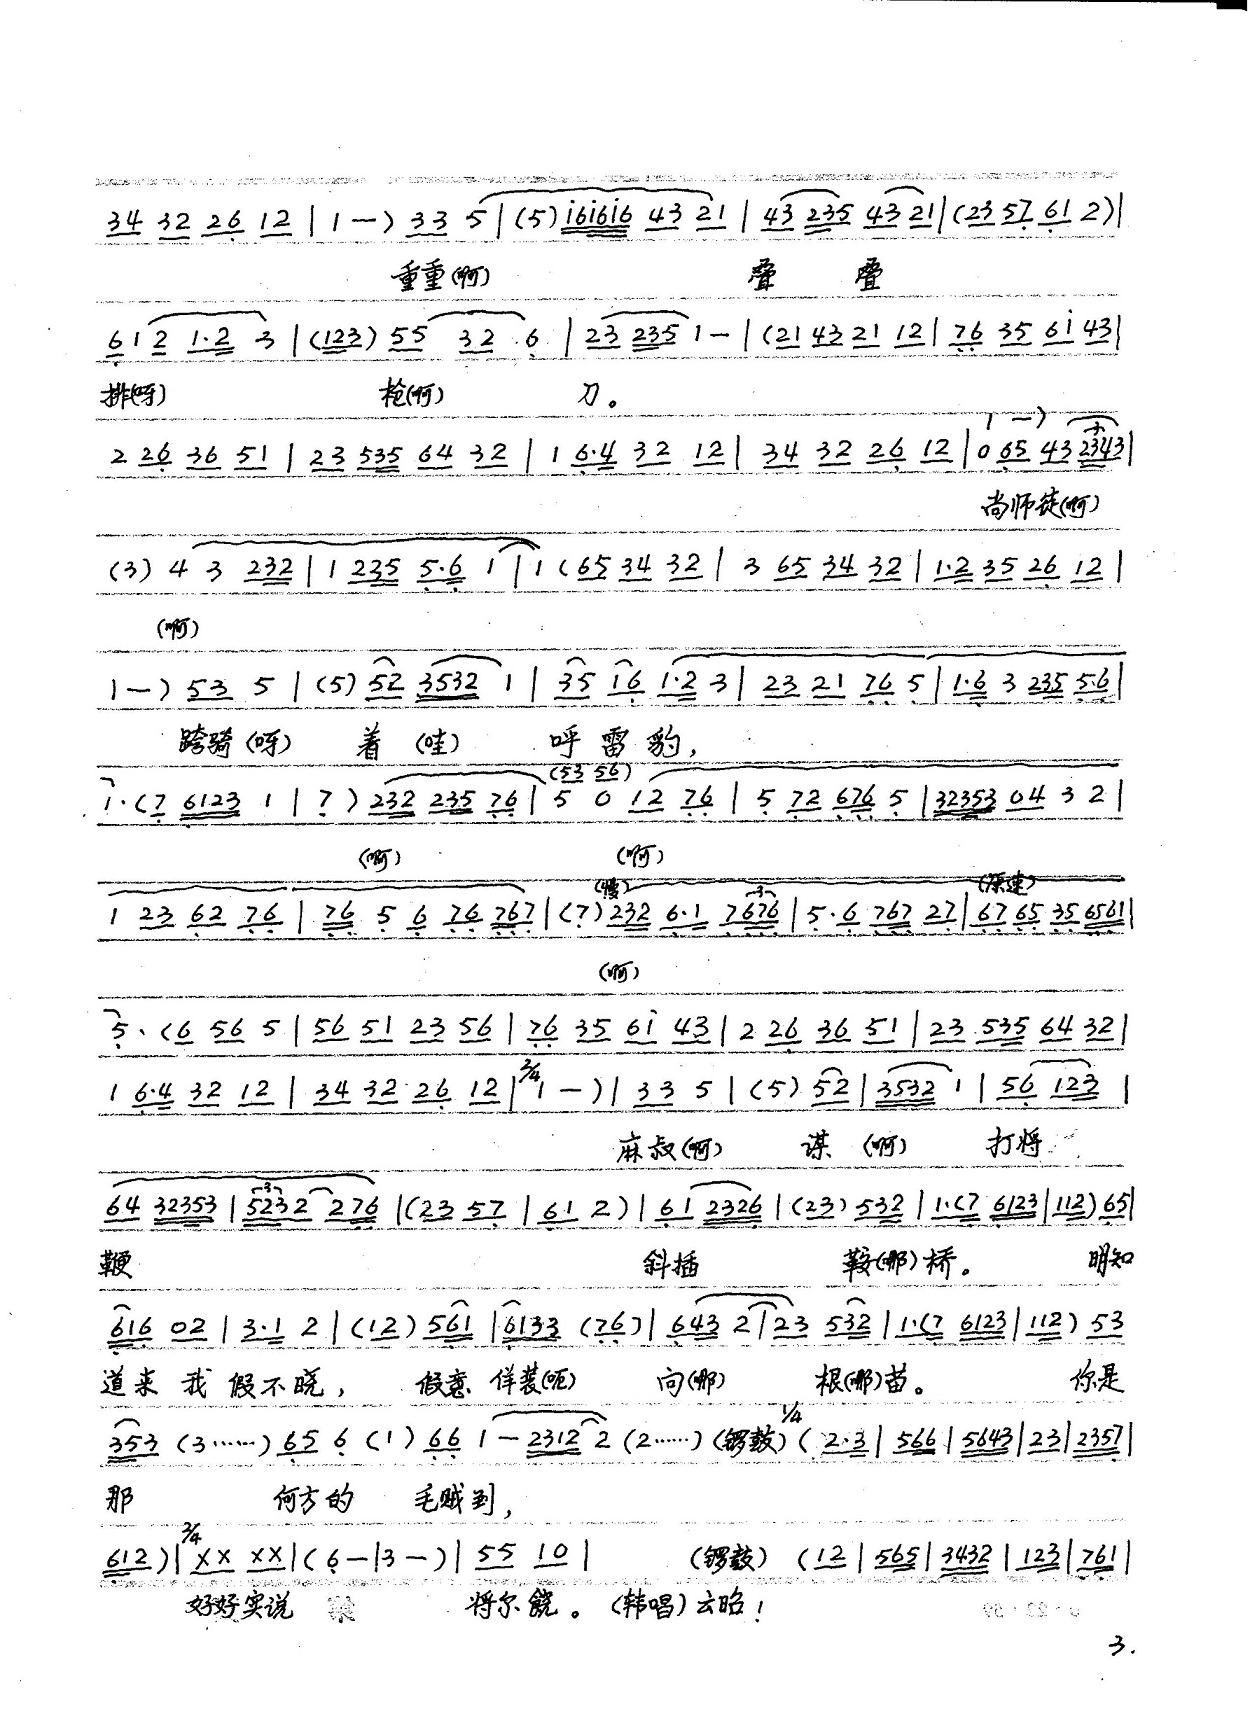 34 32 26 12 | 1 —) 33 5 | (5) i6i6i6 43 21 | 43 235 43 21 | (23 57 61 2) |
重重(啊) 叠 叠
61 2 1·2 3 | (123) 55 32 6 | 23 235 1 — | (21 43 21 12 | 76 35 6i 43 |
排(呀) 枪(啊) 刀。
1 —)
2 26 36 51 | 23 535 64 32 | 1 6·4 32 12 | 34 32 26 12 | 0 65 43 2343 |
尚师徒(啊)
(3) 4 3 232 | 1 235 5·6 1 | 1 (65 34 32 | 3 65 34 32 | 1·2 35 26 12 |
(啊)
1 —) 53 5 | (5) 52 3532 1 | 35 i6 1·2 3 | 23 21 76 5 | 1·6 3 235 5·6 |
跨骑(呀) 着(哇) 呼雷豹,
(53 56)
1·(7 6123 1 | 7) 232 235 76 | 5 0 12 76 | 5 72 676 5 | 32353 04 3 2 |
(啊) (啊)
(慢) 3 (原速)
1 23 62 76 | 76 5 6 76 767 | (7) 232 6·1 7676 | 5·6 767 27 | 67 65 35 6561 |
(啊)
5·(6 56 5 | 56 51 23 56 | 76 35 6i 43 | 2 26 36 51 | 23 535 64 32 |
1 6·4 32 12 | 34 32 26 12 | 2/4 1 —) | 33 5 | (5) 52 | 3532 1 | 56 123 |
麻叔(啊) 谋(啊) 打将
64 32353 | 5232 276 | (23 57 | 61 2) | 61 2326 | (23) 532 | 1·(7 6123 | 112) 65 |
鞭 斜插 鞍(那)桥。 明知
616 02 | 3·1 2 | (12) 561 | 6133 (76) | 643 2 | 23 532 | 1·(7 6123 | 112) 53
道来 我 假不晓, 假意 佯装(呃) 问(那) 根(那)苗。 你是
353 (3……) 65 6 (1) 66 1 — 2312 2 (2……) (锣鼓) 1/4 (2·3 | 566 | 5643 | 23 | 2357 |
那 何方的 毛贼到,
612) | 2/4 XX XX | (6 — | 3 —) | 55 10 | (锣鼓) (12 | 565 | 3432 | 123 | 761 |
好好实说 将尔饶。(韩唱)云昭!
3.